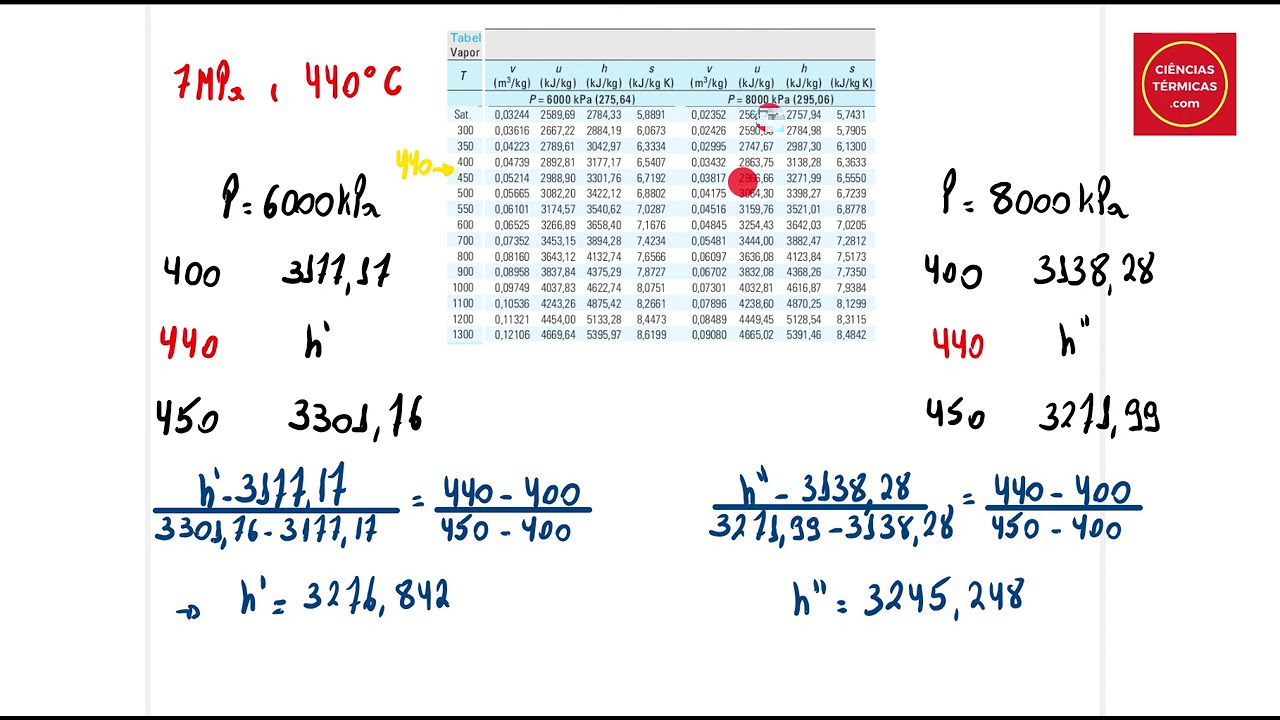 7MPa , 440°C
Tabel
Vapor
T v u h s v u h s
(m³/kg) (kJ/kg) (kJ/kg) (kJ/kg K) (m³/kg) (kJ/kg) (kJ/kg) (kJ/kg K)
P = 6000 kPa (275,64) P = 8000 kPa (295,06)
Sat. 0,03244 2589,69 2784,33 5,8891 0,02352 2757,94 5,7431
300 0,03616 2667,22 2884,19 6,0673 0,02426 2784,98 5,7905
350 0,04223 2789,61 3042,97 6,3334 0,02995 2747,67 2987,30 6,1300
400 0,04739 2892,81 3177,17 6,5407 0,03432 2863,75 3138,28 6,3633
450 0,05214 2988,90 3301,76 6,7192 0,03817 2966,66 3271,99 6,5550
500 0,05665 3082,20 3422,12 6,8802 0,04175 3064,30 3398,27 6,7239
550 0,06101 3174,57 3540,62 7,0287 0,04516 3159,76 3521,01 6,8778
600 0,06525 3266,89 3658,40 7,1676 0,04845 3254,43 3642,03 7,0205
700 0,07352 3453,15 3894,28 7,4234 0,05481 3444,00 3882,47 7,2812
800 0,08160 3643,12 4132,74 7,6566 0,06097 3636,08 4123,84 7,5173
900 0,08958 3837,84 4375,29 7,8727 0,06702 3832,08 4368,26 7,7350
1000 0,09749 4037,83 4622,74 8,0751 0,07301 4032,81 4616,87 7,9384
1100 0,10536 4243,26 4875,42 8,2661 0,07896 4238,60 4870,25 8,1299
1200 0,11321 4454,00 5133,28 8,4473 0,08489 4449,45 5128,54 8,3115
1300 0,12106 4669,64 5395,97 8,6199 0,09080 4665,02 5391,46 8,4842
440→
CIÊNCIAS
TÉRMICAS
.com
P = 6000 kPa
400 3177,17
440 h'
450 3301,76
h' - 3177,17 = 440 - 400
3301,76 - 3177,17 450 - 400
→ h' = 3276,842
P = 8000 kPa
400 3138,28
440 h''
450 3271,99
h'' - 3138,28 = 440 - 400
3271,99 - 3138,28 450 - 400
h'' = 3245,248